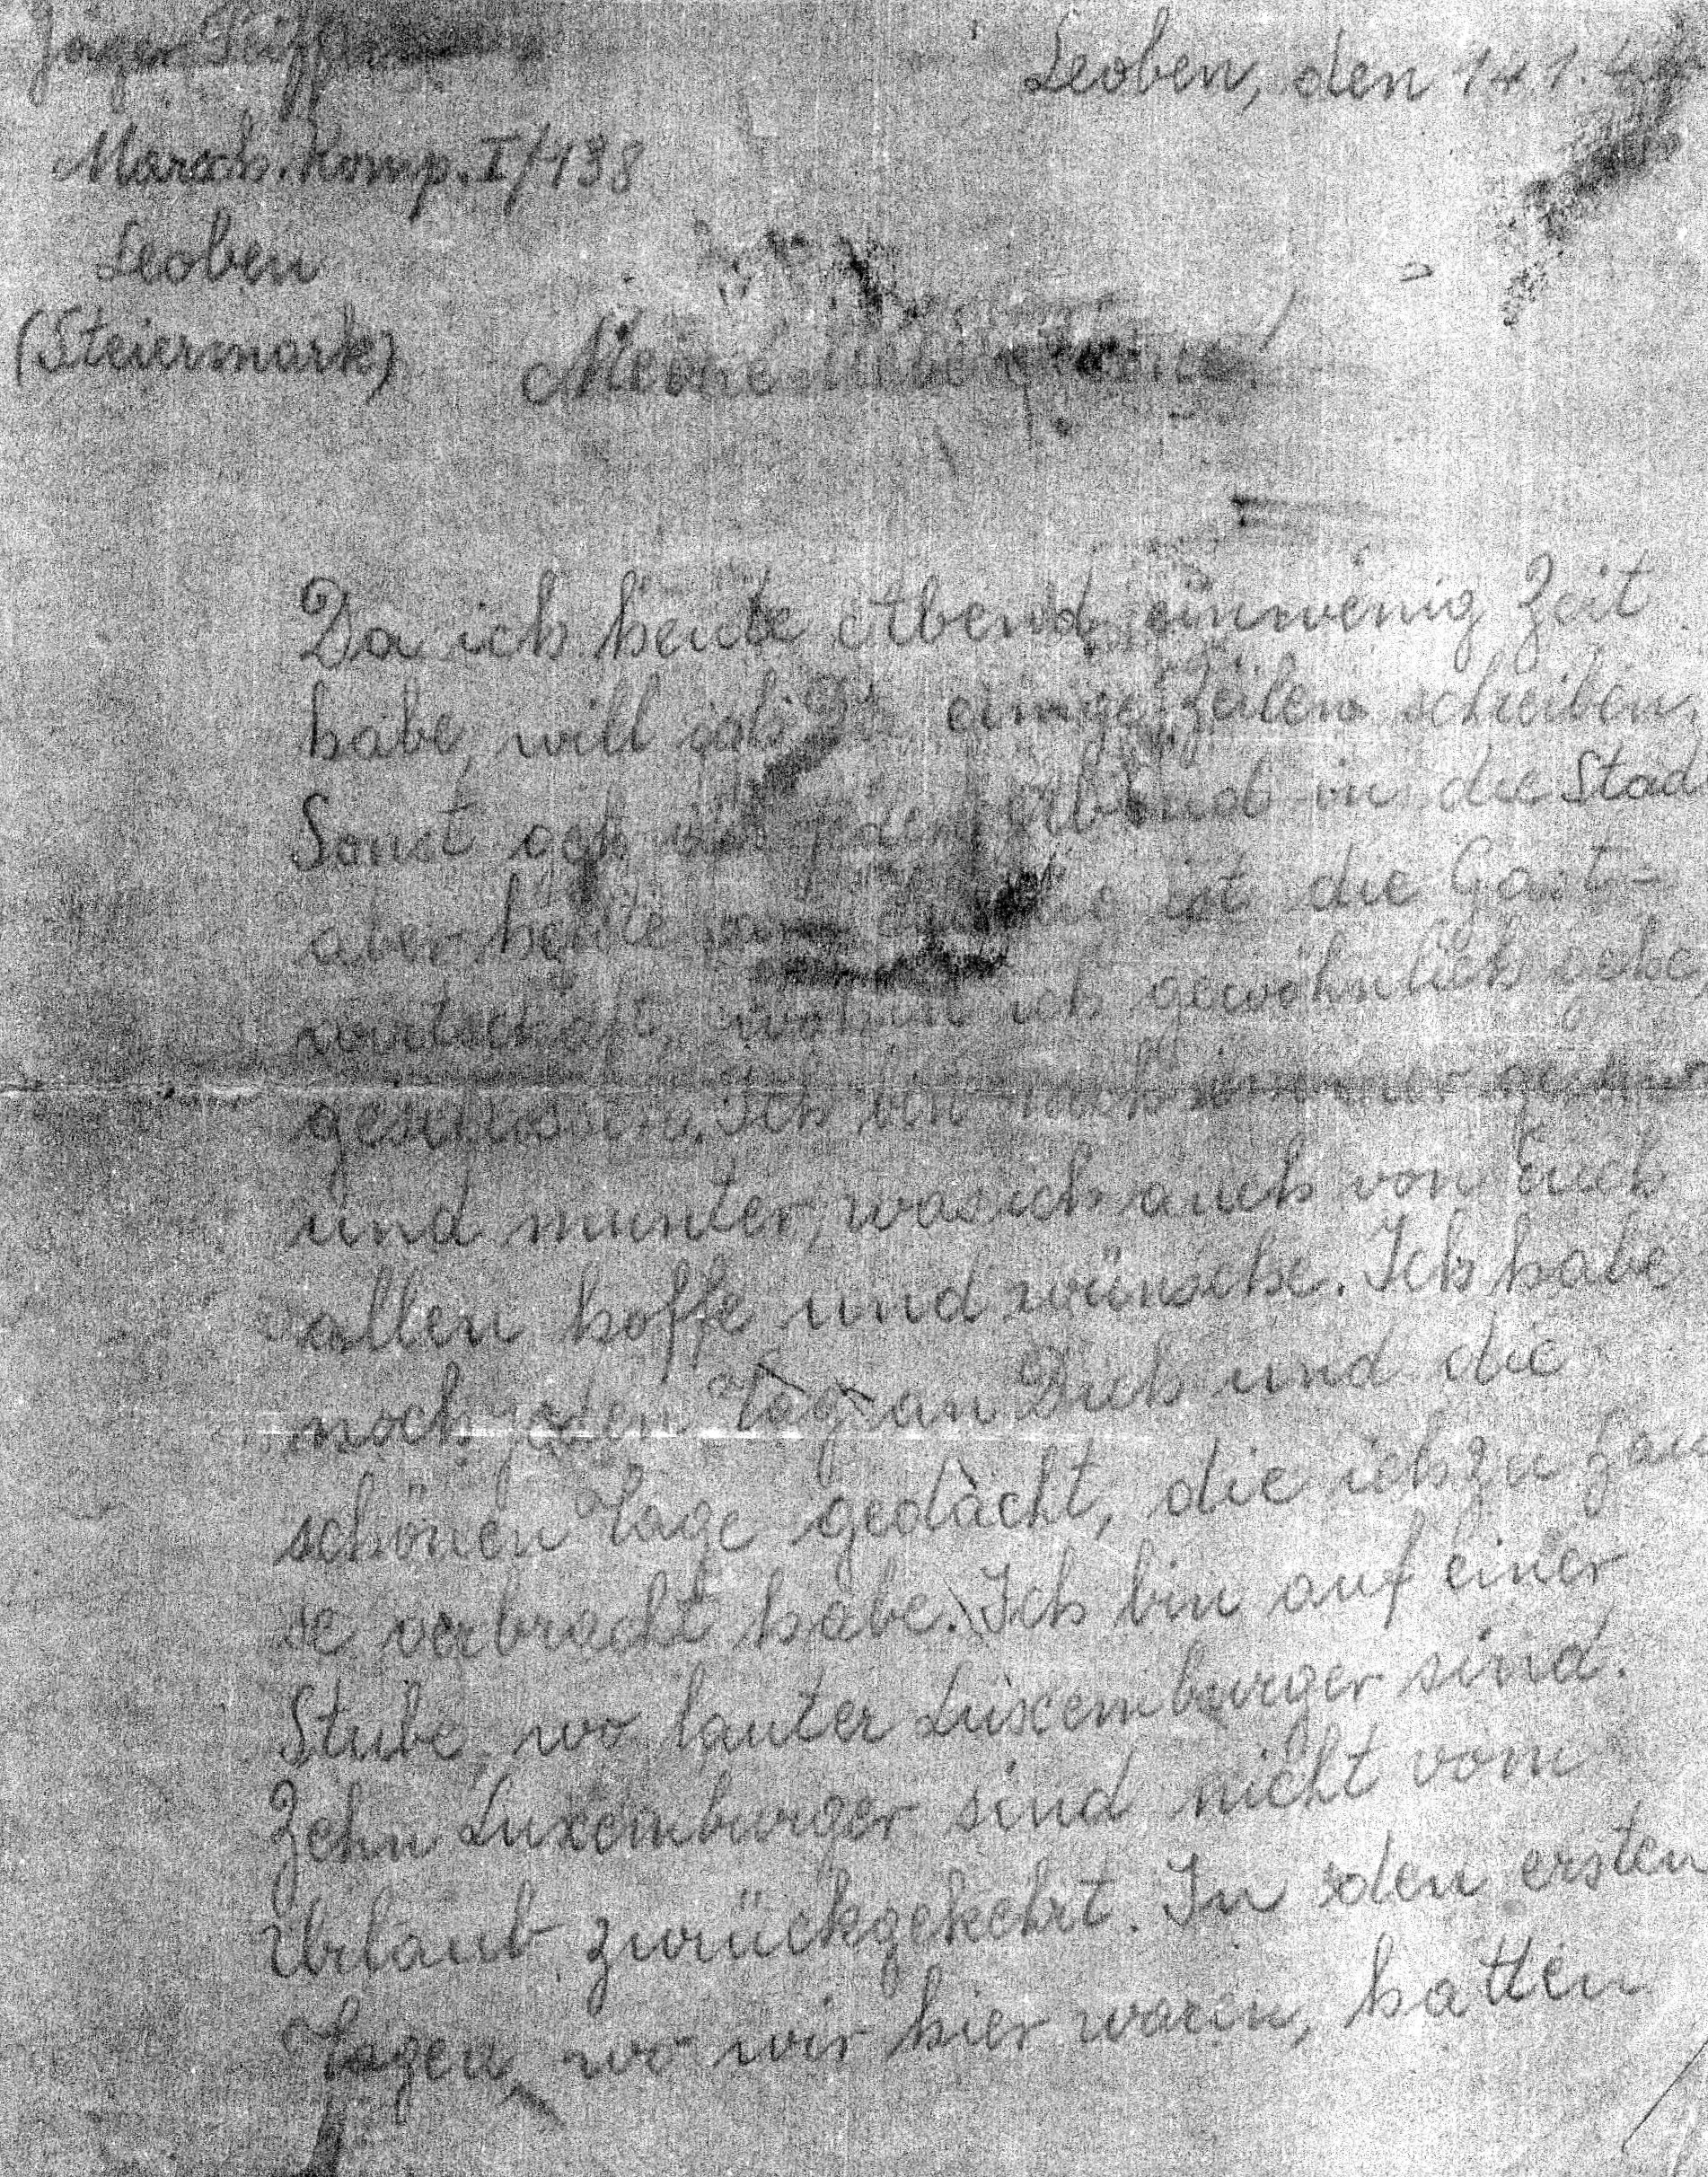 Jäger
Leoben, den 14.1.44
Marsch. Komp. I/138
Leoben
(Steiermark)
Meine liebe
Da ich heute Abend einwenig Zeit
habe, will ich Dir einige Zeilen schreiben,
Sonst geh ich jeden Abend in die Stad
aber heute ist die Gast-
wirtschaft, wohin ich gewöhnlich gehe
geschlossen. Ich bin noch immer
und munter, was ich auch von Euch
allen hoffe und wünsche. Ich habe
noch jeden Tag an Dich und die
schönen Tage gedacht, die ich zu Hau
se verbracht habe. Ich bin auf einer
Stube wo lauter Luxemburger sind.
Zehn Luxemburger sind nicht vom
Urlaub zurückgekehrt. In den ersten
Tagen, wo wir hier waren, hatten